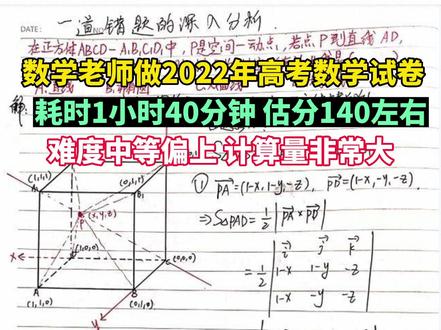 DATE:
一道错题的深入分析.
在正方体ABCD-A₁B₁C₁D₁中,P是空间一动点,若点P到直线AD,
数学老师做2022年高考数学试卷
耗时1小时40分钟 估分140左右
难度中等偏上 计算量非常大
① PA=(1-x, 1-y, -z), PD=(1-x, -y, -z).
⇒ S△PAD = 1/2 |PA×PD|
P (x,y,z)
= 1/2 | i j k
1-x 1-y -z
1-x -y -z |
(1,0,0)
(0,0,0)
x
A
(1,1,0)
B
(0,1,0)
y